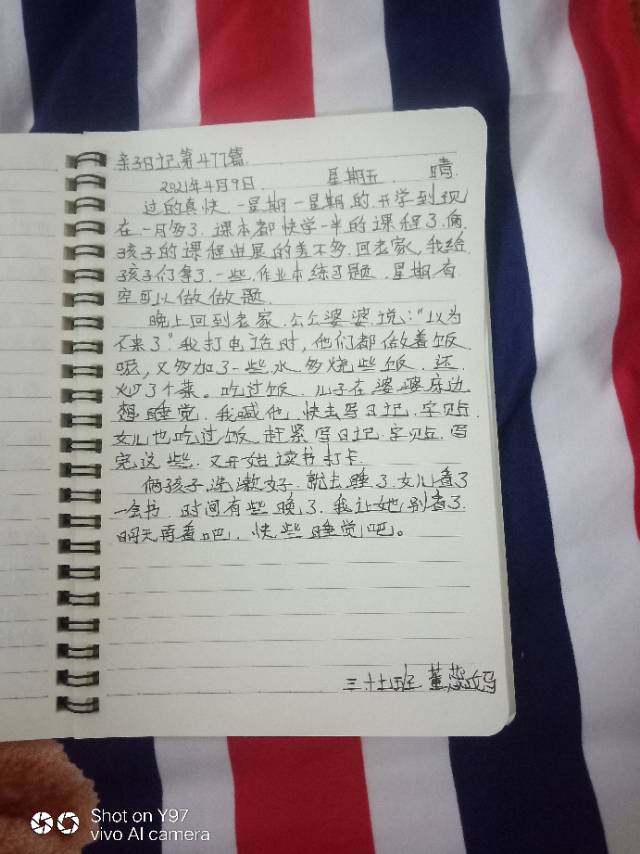 亲子日记第477篇
2021年4月9日 星期五 晴
过的真快,一星期一星期的,开学到现
在一月多了,课本都快学一半的课程了,俩
孩子的课程进展的差不多,回老家,我给
孩子们拿了一些作业本练习题,星期有
空可以做做题。
晚上回到老家,公公婆婆说:"以为
不来了"我打电话时,他们都做着饭
呢,又多加了一些水多烧些饭,还
炒了个菜。吃过饭,儿子在婆婆床边
想睡觉,我喊他,快去写日记,字贴,
女儿也吃过饭,赶紧写日记,字贴,写
完这些,又开始读书打卡。
俩孩子洗漱好,就去睡了,女儿看了
一会书,时间有些晚了,我让她别看了,
明天再看吧,快些睡觉吧。
董蕊妈
Shot on Y97
vivo AI camera